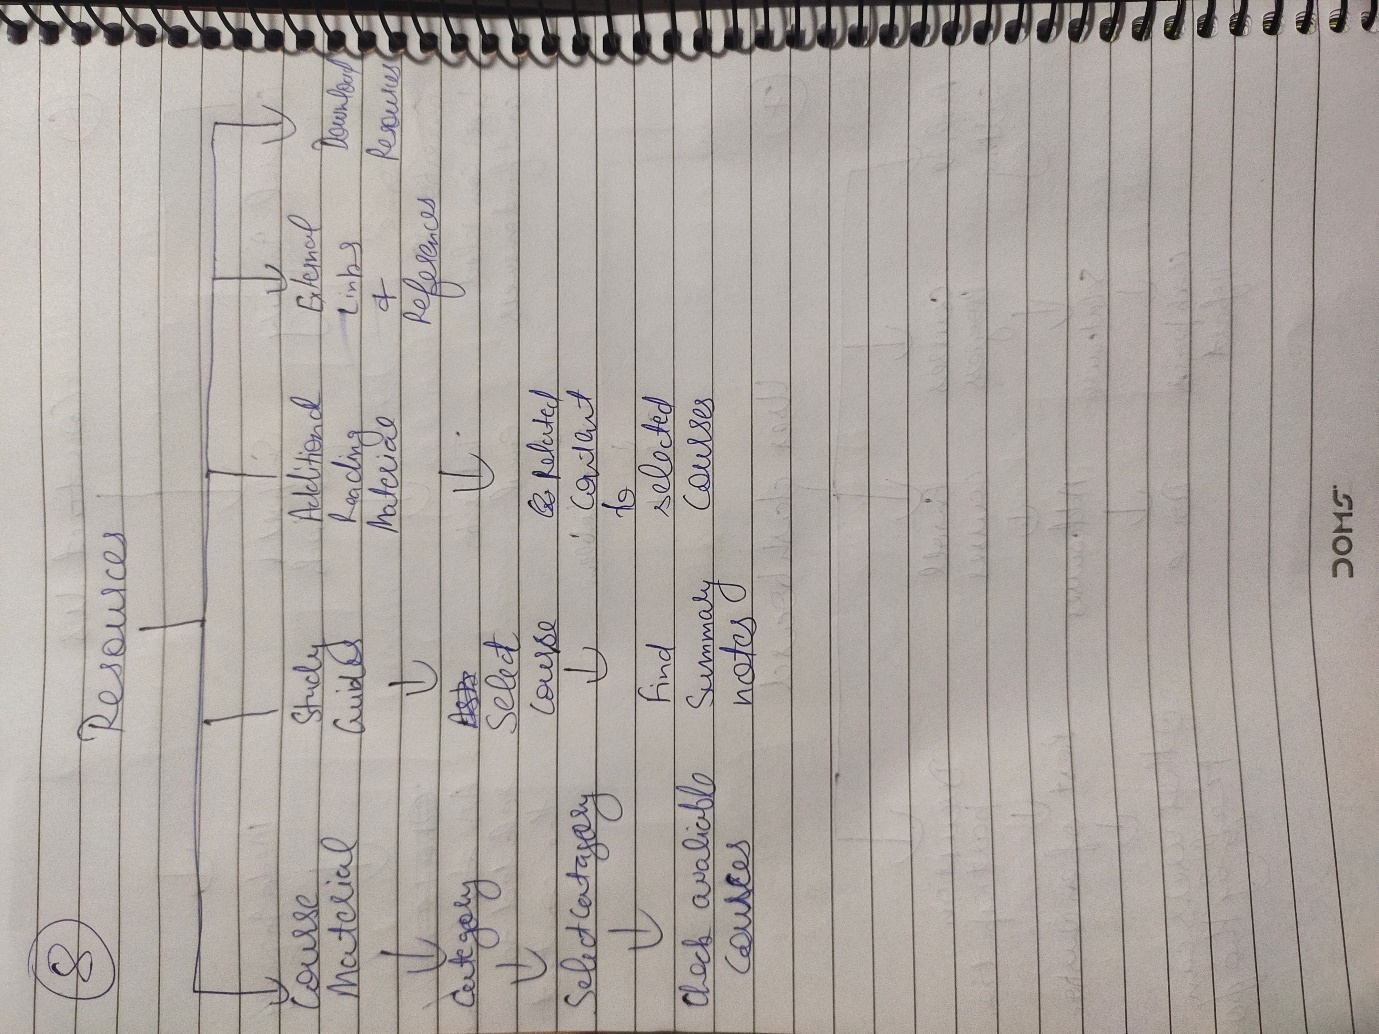 8
Resources
Course
Material
Category
Select Catagory
Check avaliable
Courses
Study
Guides
Select
Course
Find
Summary
notes
Additional
Reading
Material
Related
Contant
to
selected
Courses
External
Links
&
References
Download
Resources
DOMS